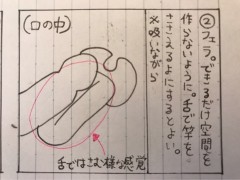 (口の中)
②フェラ。できるだけ空間を
作らないように。舌で竿を
ささえるよにするとよい。
※吸いながら
舌ではさむ様な感覚